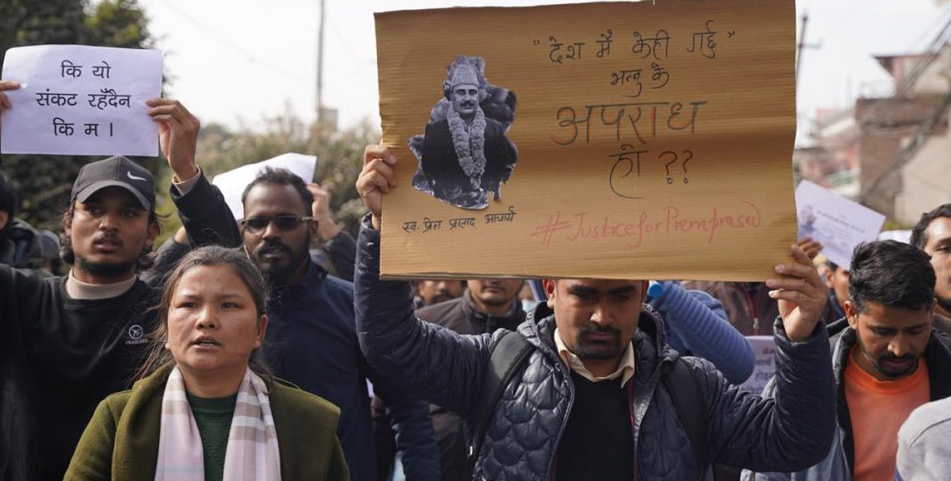 कि यो
संकट रहँदैन
कि म ।
"देश मै केही गर्छु"
भन्नु के
अपराध
हो ??
स्व. प्रेम प्रसाद आचार्य
#JusticeforPremprasad